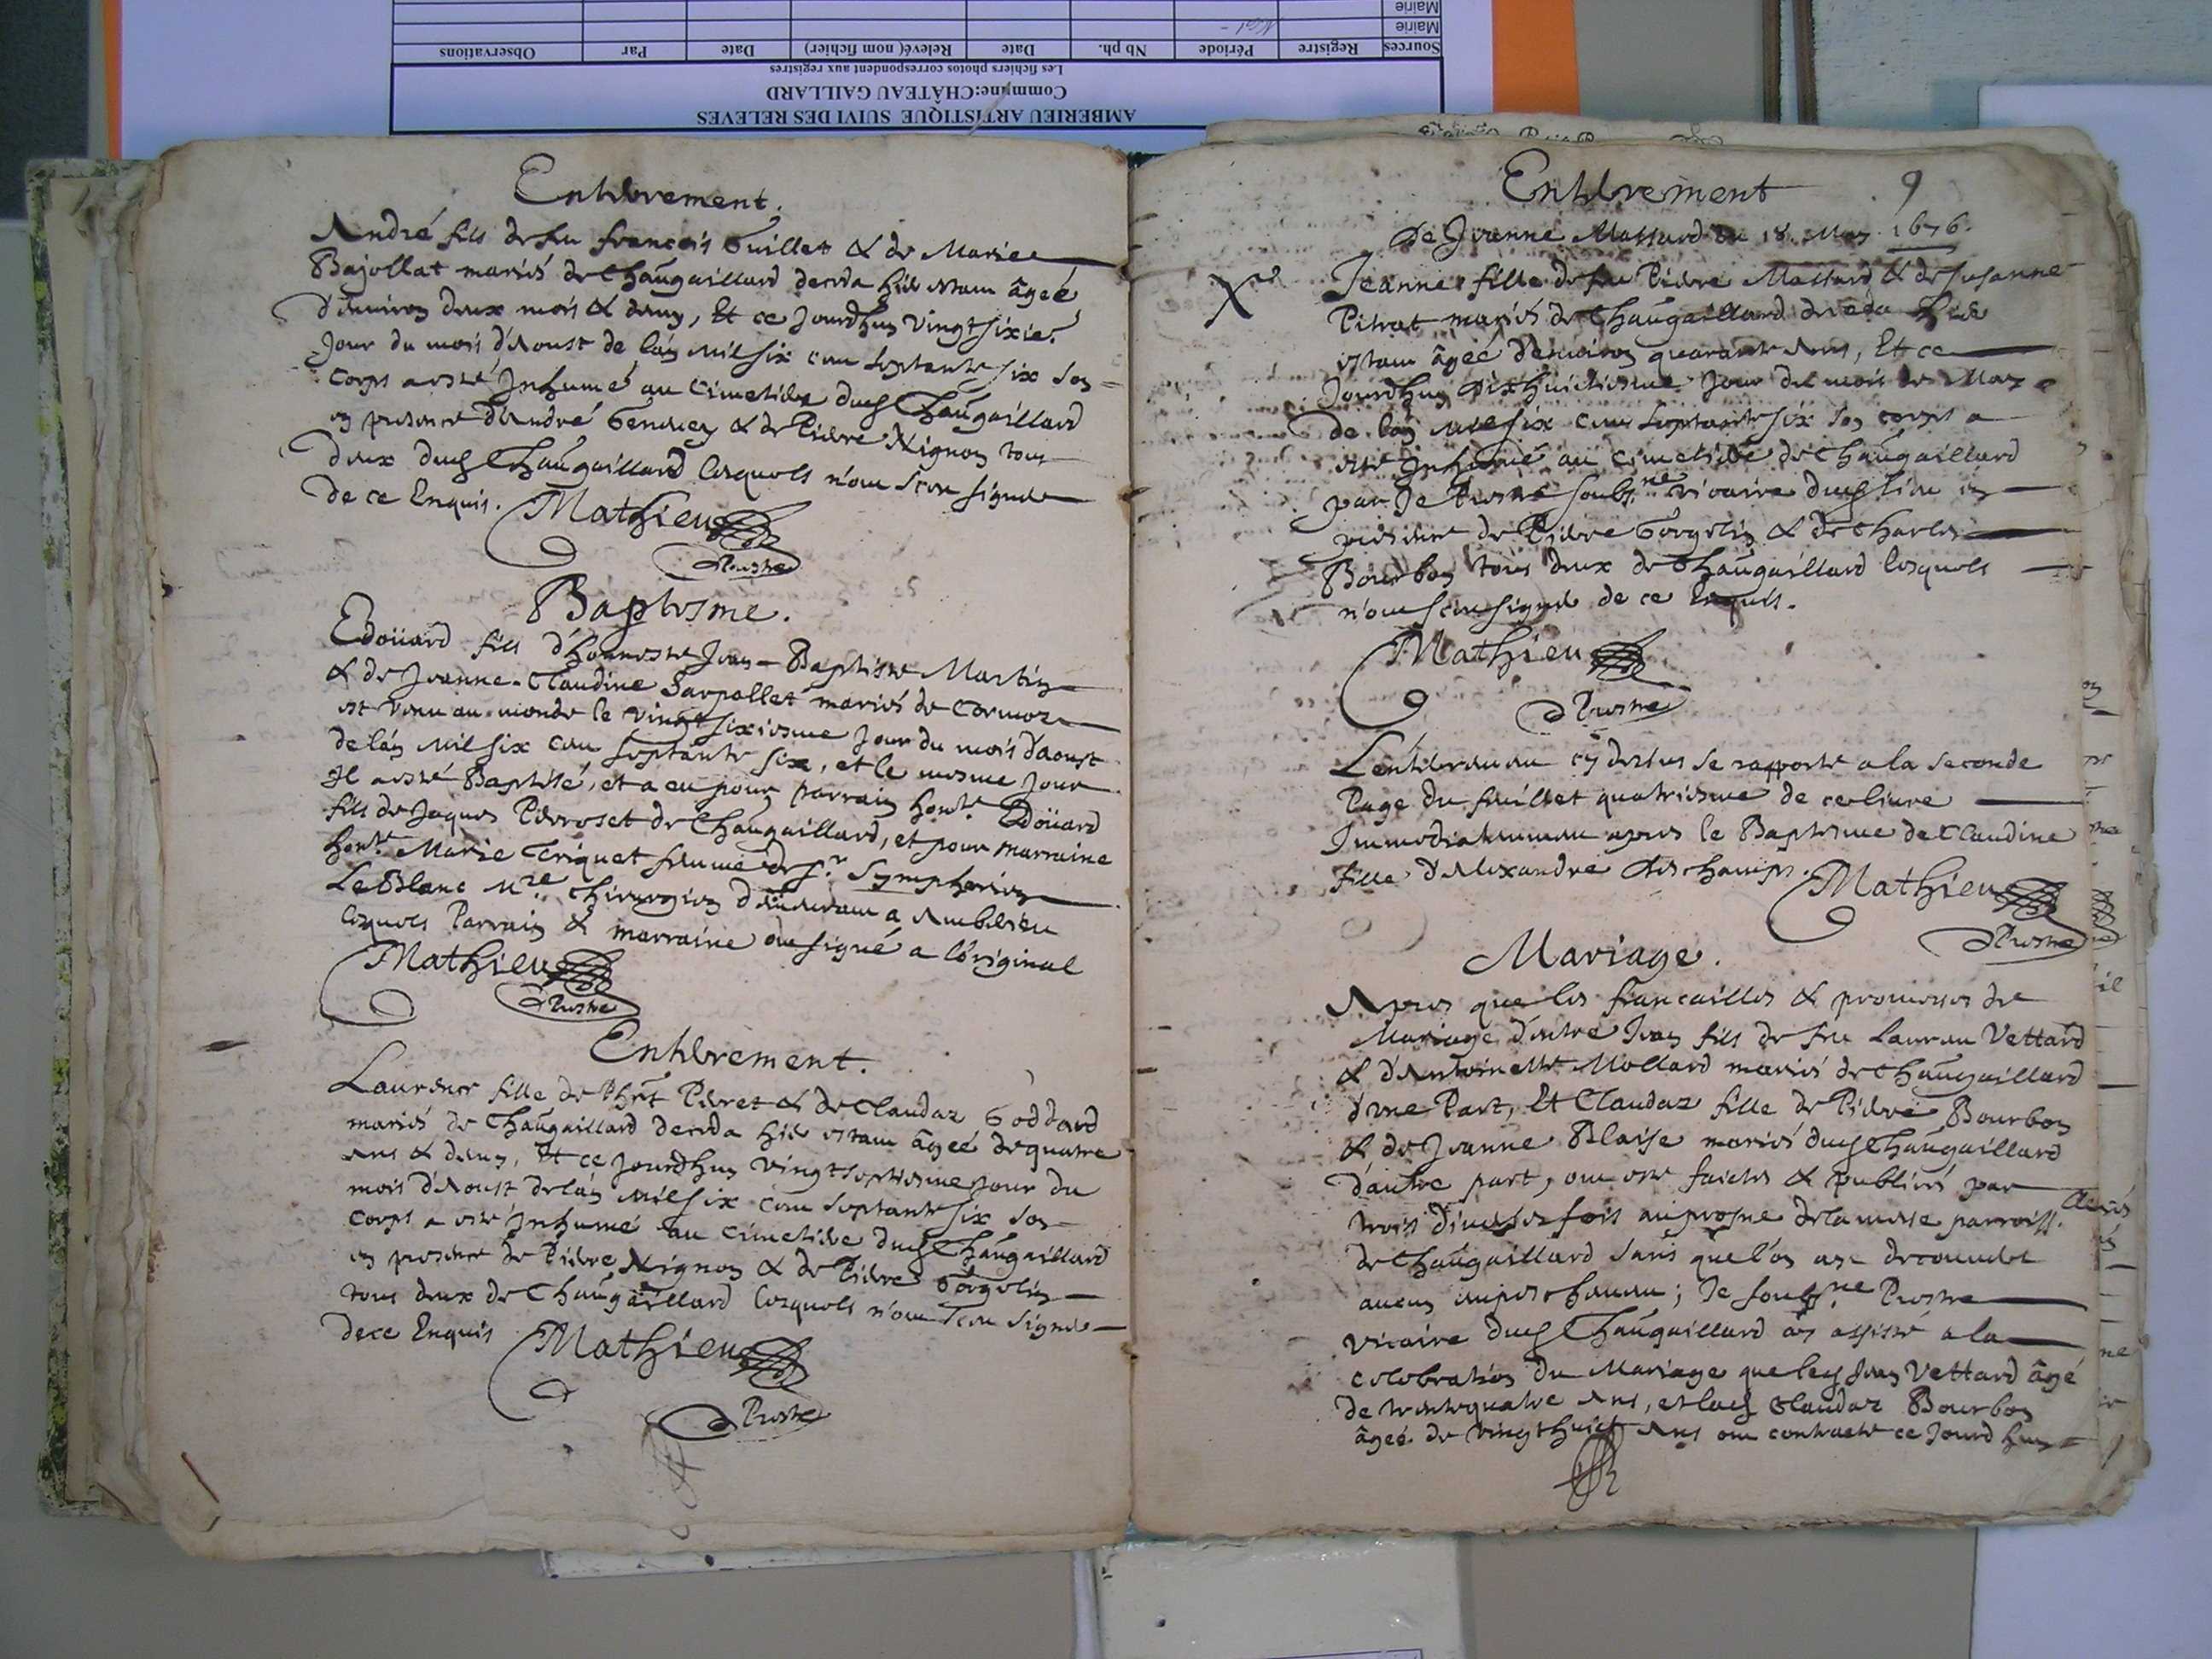 AMBERIEU ARTISTIQUE SUIVI DES RELEVES
Commune: CHÂTEAU GAILLARD
Les fichiers photos correspondent aux registres
Sources Registre Période Nb ph. Date Relevé( nom fichier) Date Par Observations
Mairie
Mairie
Enterrement.
André fils de feu francois Guillet & de Marie
Bajollat mariés de Chaûgaillard deceda hier estant âgeé
d'environ deux mois & demy, Et ce Jourdhuy vingtsixie.
Jour du mois d'Aoust de l'añ mil six cent septante six son
Corps a esté Inhumé au Cimetiere dud Chaûgaillard
en presence d'André & de Pierre Nignon tous
deux dud Chaûgaillard lesquels n'ont sceu signer
de ce Enquis. Mathieu
Prestre
Baptesme.
Edoüard fils d'honneste Jean-Baptiste Martin
& de Jeanne-Claudine Sarpollet mariés de Cormoz
est venu au monde le vingtsixiesme Jour du mois d'aoust
de l'añ mil six cent septante six, et le mesme Jour
Il a esté Baptisé, et a eu pour parrain honte. Edoüard
fils de Jaques Perroset de Chaûgaillard, et pour marraine
honte. Marie Criquet femme de sr. Symphorien
LeBlanc Mre. chirurgien demeurant a Amberieu
lesquels Parrain & marraine ont signé a l'original
Mathieu
Prestre
Enterrement.
Laurence fille de Phet Pierret & de Claudaz Goddard
mariés de Chaûgaillard deceda hier estant âgeé de quatre
ans & demy, Et ce Jourdhuy vingtseptiesme Jour du
mois d'Aoust de l'añ mil six cent septante six son
Corps a esté Inhumé au Cimetiere dud Chaûgaillard
en presence de Pierre Nignon & de Pierre Gorgolin
tous deux de Chaûgaillard lesquels n'ont sceu signer
de ce Enquis Mathieu
Prestre
Enterrement 9
de Jeanne Massard du 18. May 1676.
Jeanne fille de feu Pierre Massard & de Susanne
Pitrat mariés de Chaûgaillard deceda hier
estant âgeé d'environ quarante Ans, Et ce
Jourdhuy dixhuictiesme Jour du mois de May
de l'añ mil six cent septante six son corps a
esté Inhumé au cimetiere de Chaûgaillard
par Je Prestre soubsne. vicaire dud lieu en
presence de Pierre Gorgolin & de Charles
Bourbon tous deux de Chaûgaillard lesquels
n'ont sceu signer de ce Enquis.
Mathieu
Prestre
L'enterrement cy dessus se rapporte a la seconde
Page du feuillet quatriesme de ce livre
Immediatement apres le Baptesme de Claudine
fille d'Alexandre des champs. Mathieu
Prestre
Mariage.
Apres que les francailles & promesses de
Mariage d'entre Jean fils de feu Laurent Vettard
& d'Antoinette Mollard mariés de Chaûgaillard
d'une Part, Et Claudaz fille de Pierre Bourbon
& de Jeanne Blaise mariés dud Chaûgaillard
d'autre part, ont esté faictes & publiées par
trois diverses fois au prosne de la messe parroiss.
de Chaûgaillard sans que l'on aye decouvert
aucun empeschement; Je soubsne. Prestre
vicaire dud Chaûgaillard ay assisté a la
celebration du Mariage que led Jean Vettard âgé
de trentequatre Ans, et lad Claudaz Bourbon
âgeé de vingthuict Ans ont contracté ce Jourdhuy